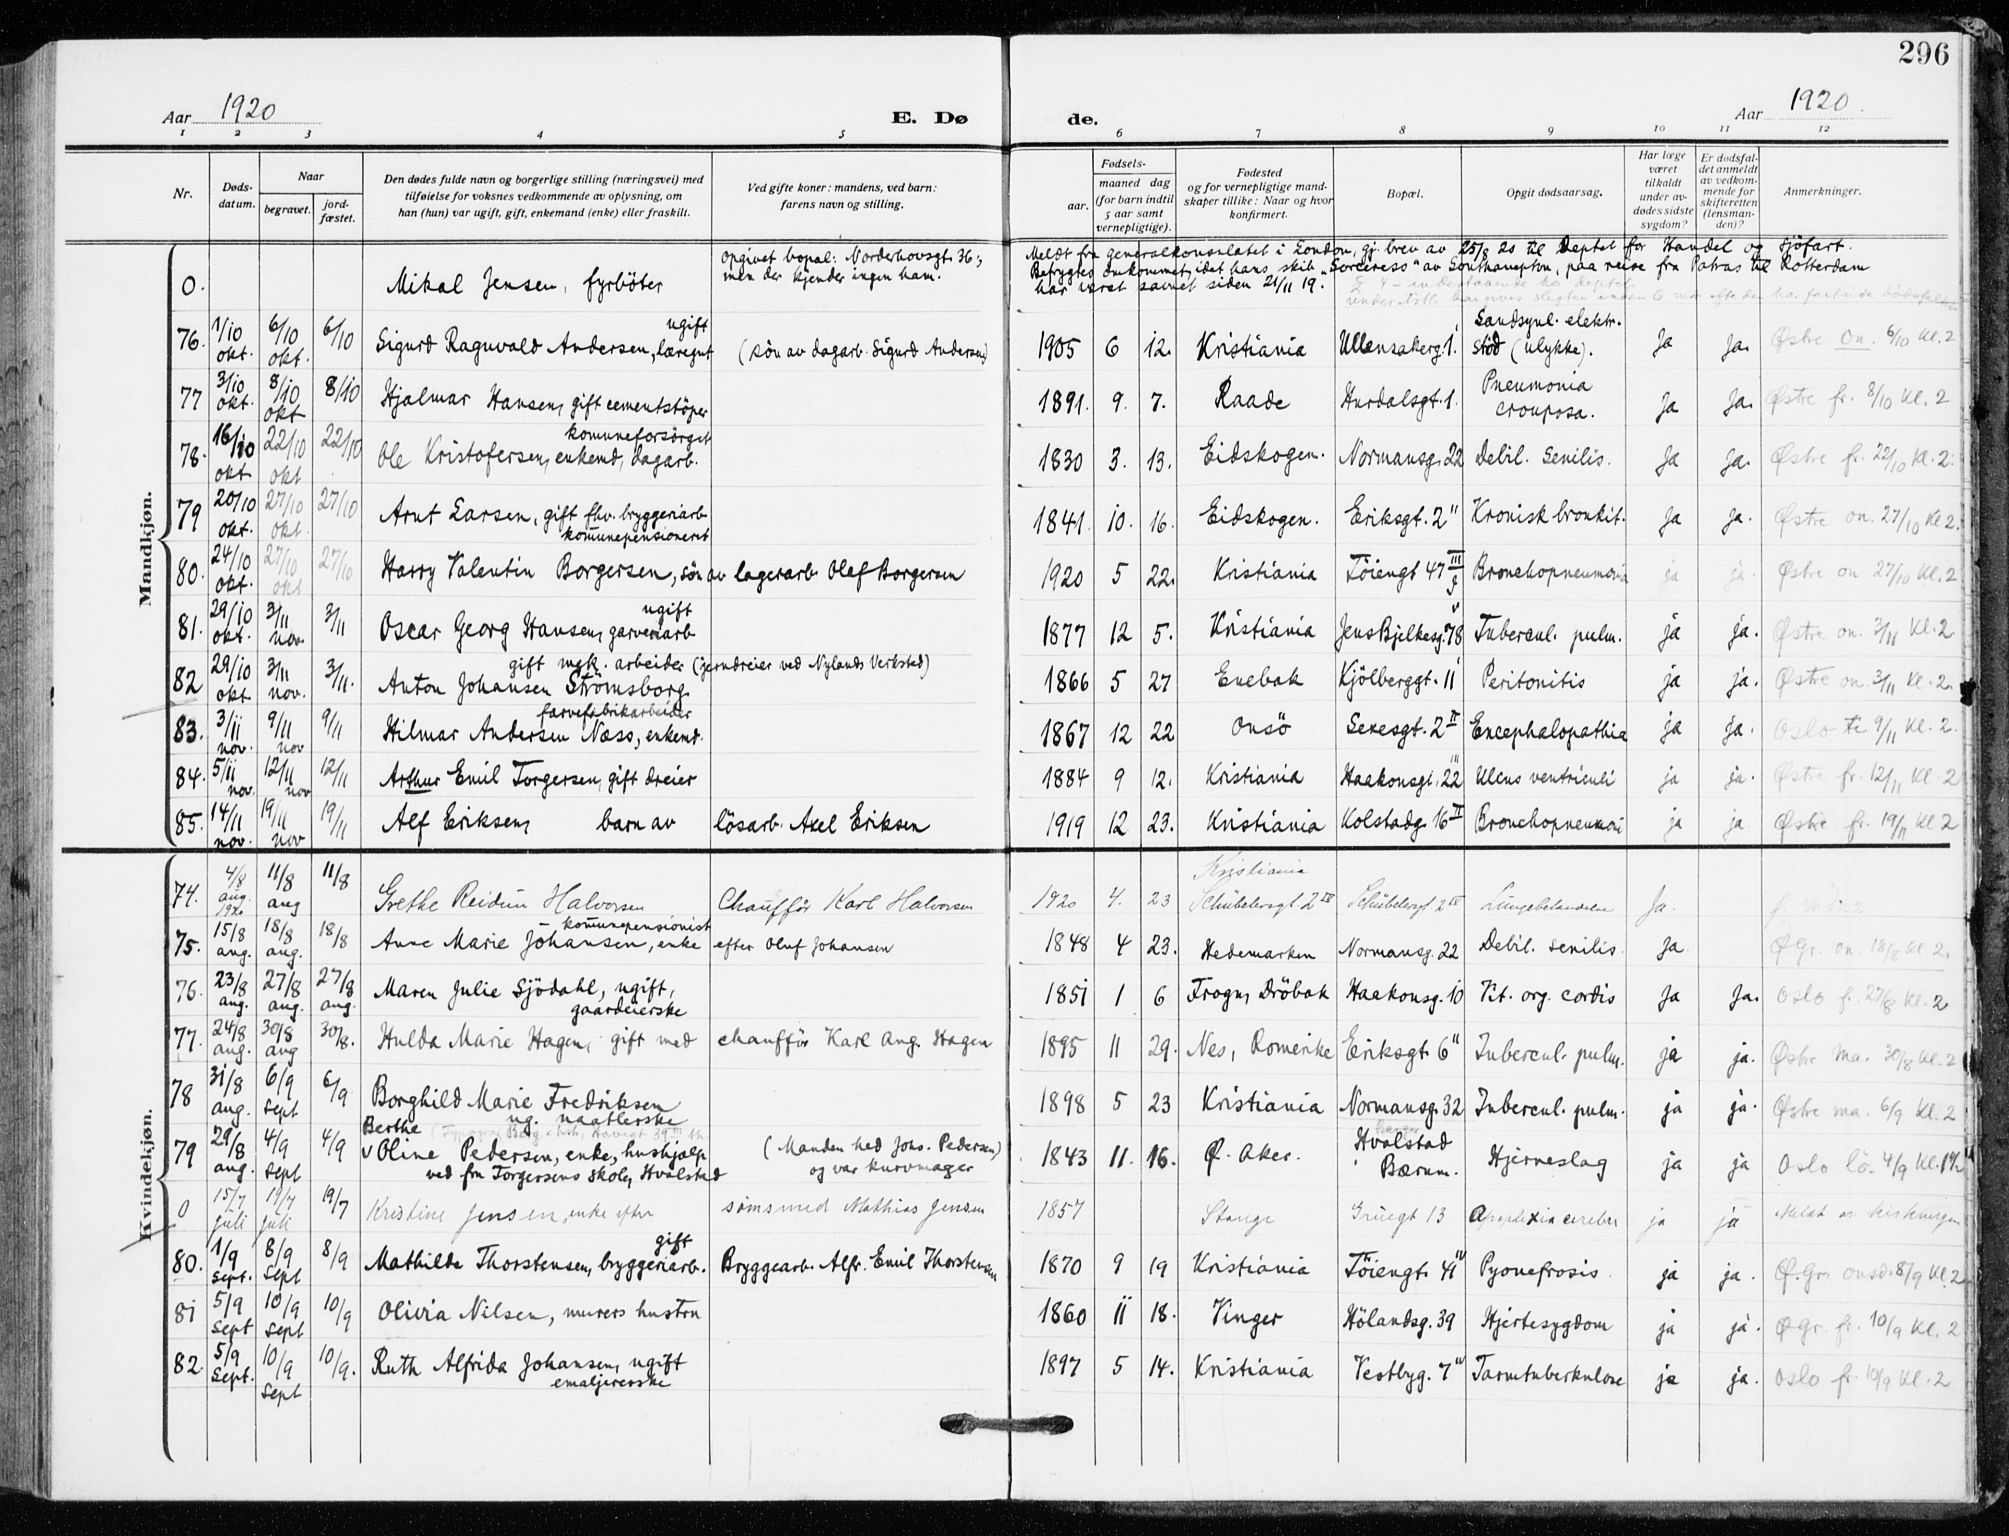 296
Aar 1920 E. Dø de. Aar 1920.
1 2 3 4 5 6 7 8 9 10 11 12
Nr. Døds-datum. Naar begravet. jord-fæstet. Den dødes fulde navn og borgerlige stilling (næringsvei) med tilføielse for voksnes vedkommende av oplysning, om han (hun) var ugift, gift, enkemand (enke) eller fraskilt. Ved gifte koner: mandens, ved barn: farens navn og stilling. Fødsels- aar. maaned dag (for barn indtil 5 aar samt vernepligtige). Fødested og for vernepligtige mand-skaper tillike: Naar og hvor konfirmert. Bopæl. Opgit dødsaarsag. Har læge været tilkaldt under av-dødes sidste sygdom? Er dødsfal-det anmeldt av vedkom-mende for skifteretten (lensman-den)? Anmerkninger.
Mandkjøn.
0. Mikal Jensen, fyrböter opgivet bopæl: Norderhovsgt. 36; men der kjender ingen ham. Meldt fra generalkonsulatet i London, gj. brev av 25/8 20 til Deptet for Handel og Sjöfart. Befrygtes omkommet, idet hans skib "Sorceress" av Southampton, paa reise fra Patras til Rotterdam har været savnet siden 21/11 19.
76. 1/10 okt. 6/10 okt. 6/10 Sigurd Ragnvald Andersen, ugift læregut (søn av dagarb. Sigurd Andersen) 1905 6 12. Kristiania Ullensakerg. 1. Sandsynl. elektr. stöd (ulykke). Ja Ja. Østre on. 6/10 Kl. 2
77 3/10 okt. 8/10 okt 8/10 Hjalmar Hansen, gift cementstöper 1891. 9. 7. Raade Hurdalsgt. 1. Pneumonia crouposa. Ja Ja. Østre fr. 8/10 Kl. 2
78. 16/10 okt. 22/10 okt 22/10 Ole Kristofersen, enkemd, dagarb. komuneforsörget 1830 3. 13. Eidskogen. Normansg. 22 Debil. senilis. Ja Ja. Østre fr. 22/10 Kl. 2.
79 20/10 okt. 27/10 okt. 27/10 Arnt Larsen, gift fhv. bryggeriarb. komunepensioneret 1841. 10. 16. Eidskogen. Eriksgt. 2 II Kronisk bronkit. Ja ja. Østre on. 27/10 Kl 2.
80. 24/10 okt. 27/10 okt 27/10 Harry Valentin Borgersen, sön av lagerarb. Olaf Borgersen 1920 5 22. Kristiania Töiengt 47 III g Bronchopneumonia ja ja. Østre on 27/10 Kl. 2
81. 29/10 okt. 3/11 nov. 3/11 Oscar Georg Hansen, ugift garveriarb 1877 12 5. Kristiania Jens Bjelkesg. 78 Tubercul. pulm. ja ja. Østre on. 3/11 Kl. 2
82 29/10 okt 3/11 nov. 3/11. Anton Johansen Strömsborg gift mek. arbeider (jerndreier ved Nylands Verksted) 1866 5 27 Enebak Kjölberggt. 11 Peritonitis ja ja. Østre on. 3/11 Kl. 2.
83. 3/11 nov. 9/11 nov 9/11 Hilmar Andersen Næss, enkemd. farvefabrikarbeider 1867 12 22 Onsö Sexesgt. 2 II Encephalopathia ja ja. Oslo ti 9/11 Kl. 2.
84. 5/11 nov. 12/11 nov 12/11 Arthur Emil Torgersen, gift dreier 1884 9 12. Kristiania Haakonsgt. 22 III Ulcus ventriculi ja ja. Østre fr. 12/11 Kl. 2
85. 14/11 nov. 19/11 nov 19/11 Alf Eriksen, barn av lösarb. Axel Eriksen 1919 12 23. Kristiania Kolstadg. 16 II Bronchopneumoni ja ja. Østre fr. 19/11 Kl 2
Kvindekjøn.
74. 4/8 aug. 1920 11/8 aug 11/8 Grethe Reidun Halvorsen Chauffför Karl Halvorsen 1920 4. 23 Kristiania Schübelersgt 2 Schübelersgt 2 Lungebetændelse Ja.
75. 15/8 aug. 18/8 aug. 18/8 Anne Marie Johansen, enke komunepensionist efter Oluf Johansen 1848 4 23. Hedemarken Normansg. 22 Debil. senilis. Ja Ø.Gr. on. 18/8 Kl 2.
76. 23/8 aug. 27/8 aug. 27/8 aug. Maren Julie Sjödahl, ugift, gaardeierske 1851 1 6 Frogn, Dröbak Haakonsg. 10 Vit. org. cordis Ja Ja. Oslo f. 27/8 Kl. 2
77. 24/8 aug. 30/8 aug 30/8. Hulda Marie Hagen, gift med chaufför Karl Aug. Hagen 1895 11 29. Nes, Romerike Eriksgt. 6 II Tubercul. pulm. ja ja. Østre ma. 30/8 Kl. 2
78 31/8 aug. 6/9 sept 6/9 Borghild Marie Fredriksen ug. naatlerske 1898 5 23 Kristiania Normansg. 32 Tubercul. pulm. ja ja. Østre ma. 6/9 Kl. 2
79 29/8 aug. 4/9 sept 4/9 Berthe Oline Pedersen, enke, hushjælp ved frk Torgersens skole, Hvalstad (Manden hed Johs. Pedersen) og var kurvmager 1843 11. 16. Ø. Aker. Hvalstad Bærum. Hjerneslag ja ja Oslo lö. 4/9 Kl. 1 1/2
0 15/7 juli 19/7 juli 19/7 Kristine Jensen, enke efter sömsmed Mathias Jensen 1857 Stange Grüegt 13 Apoplexia cerebri ja ja
80. 1/9 sept. 8/9 sept 8/9 Mathilde Thorstensen, gift bryggeriarb. Bryggearb. Alfr. Emil Thorstensen 1870 9 19 Kristiania Töiengt. 41 Pyonefrosis ja ja. Ø.Gr. onsd. 8/9 Kl. 2
81 5/9 sept 10/9 sept 10/9 Olivia Nilsen, murers hustru 1860 11 18. Vinger Hölandsg. 39 Hjertesygdom ja ja. Ø Gr. fr. 10/9 Kl. 2
82. 5/9 sept. 10/9 sept 10/9. Ruth Alfrida Johansen, ugift emaljererske 1897 5 14. Kristiania Vestbyg. 7 Tarmtuberkulose ja ja. Oslo fr. 10/9 Kl. 2